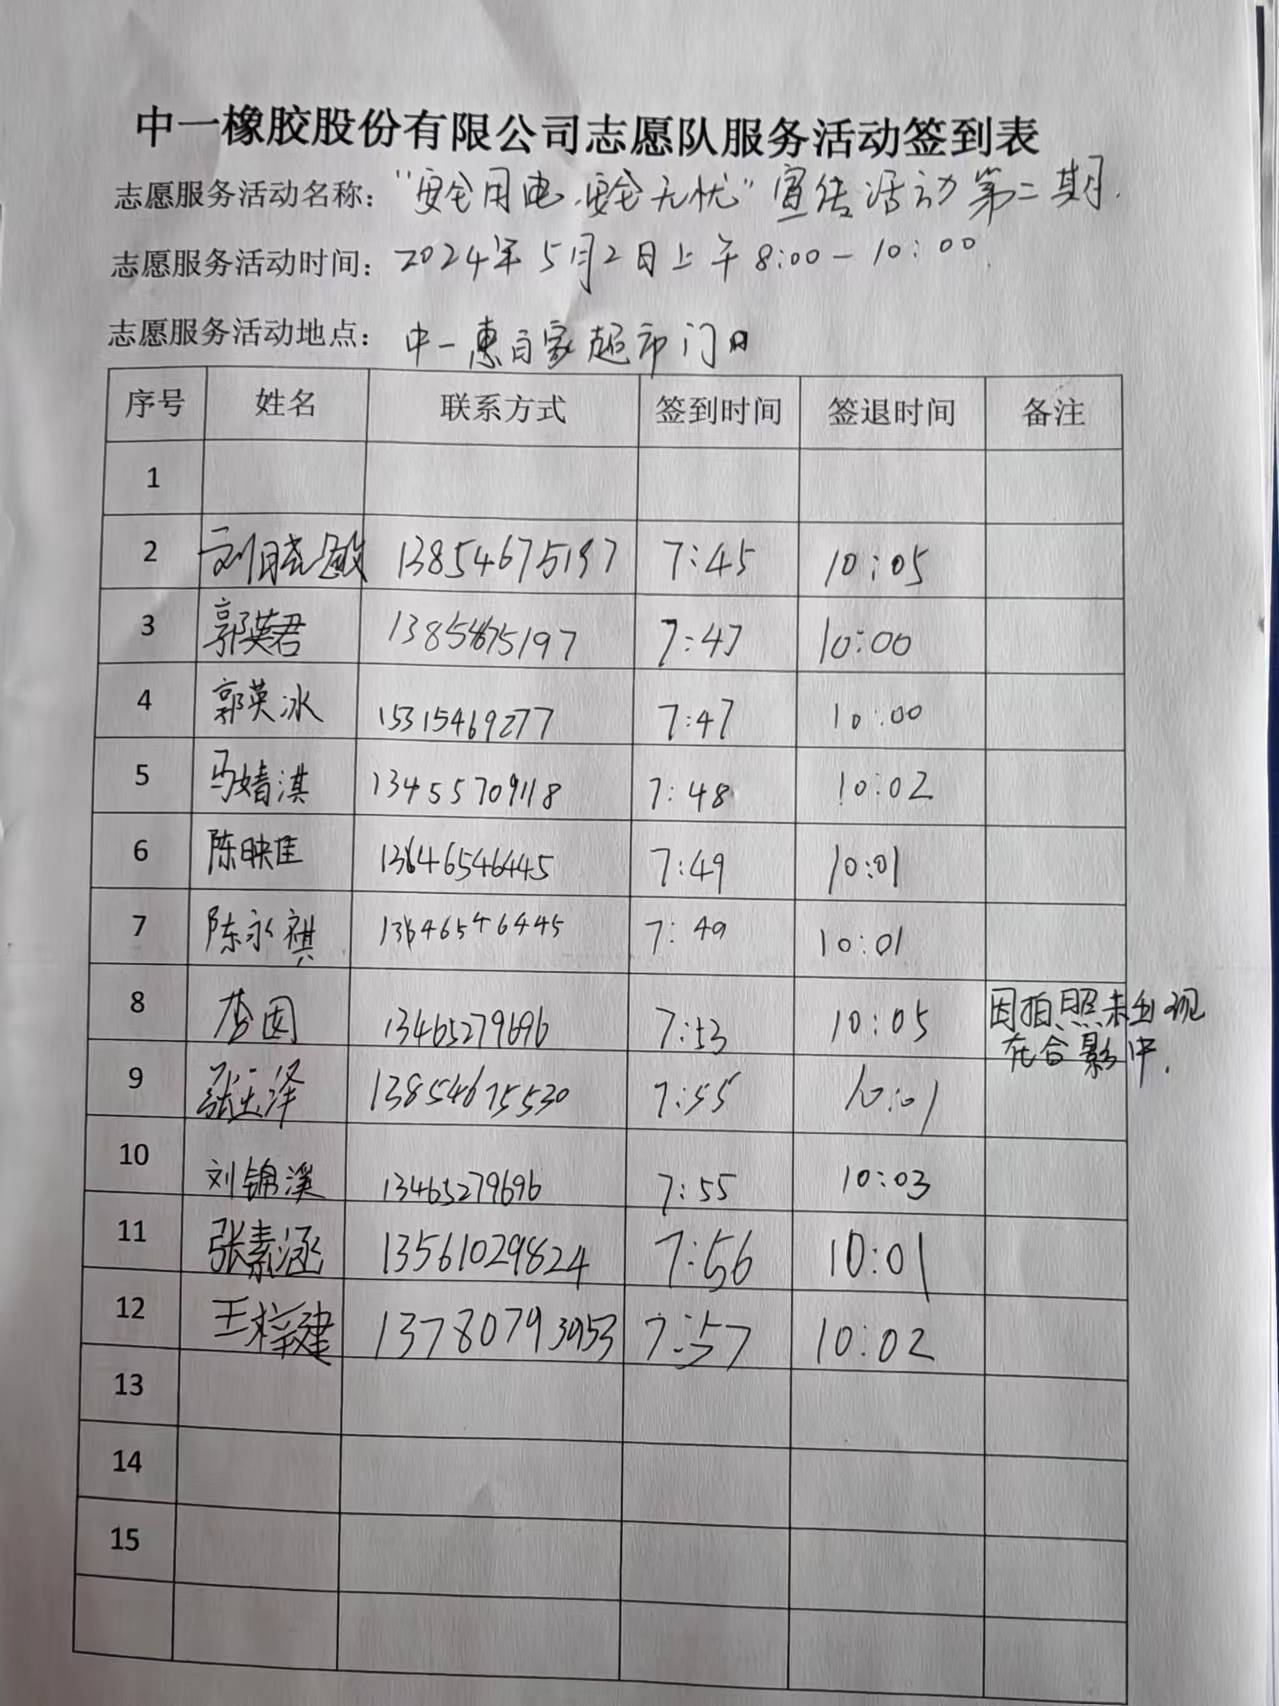 中一橡胶股份有限公司志愿队服务活动签到表
志愿服务活动名称：“安全用电，安全无忧”宣传活动第二期.
志愿服务活动时间：2024年5月2日上午8:00-10:00.
志愿服务活动地点：中一惠百家超市门口
序号 姓名 联系方式 签到时间 签退时间 备注
1
2 刘晓敏 13854675197 7:45 10:05
3 郭英君 13854675197 7:47 10:00
4 郭英冰 15315469277 7:47 10:00
5 马婧淇 13455709118 7:48 10:02
6 陈映佳 13646546445 7:49 10:01
7 陈永祺 13646546445 7:49 10:01
8 13465279696 7:53 10:05 因拍照未出现
在合影中.
9 张玉泽 13854675530 7:55 10:01
10 刘锦溪 13465279696 7:55 10:03
11 张素涵 13561029824 7:56 10:01
12 王梓建 13780793953 7:57 10:02
13
14
15